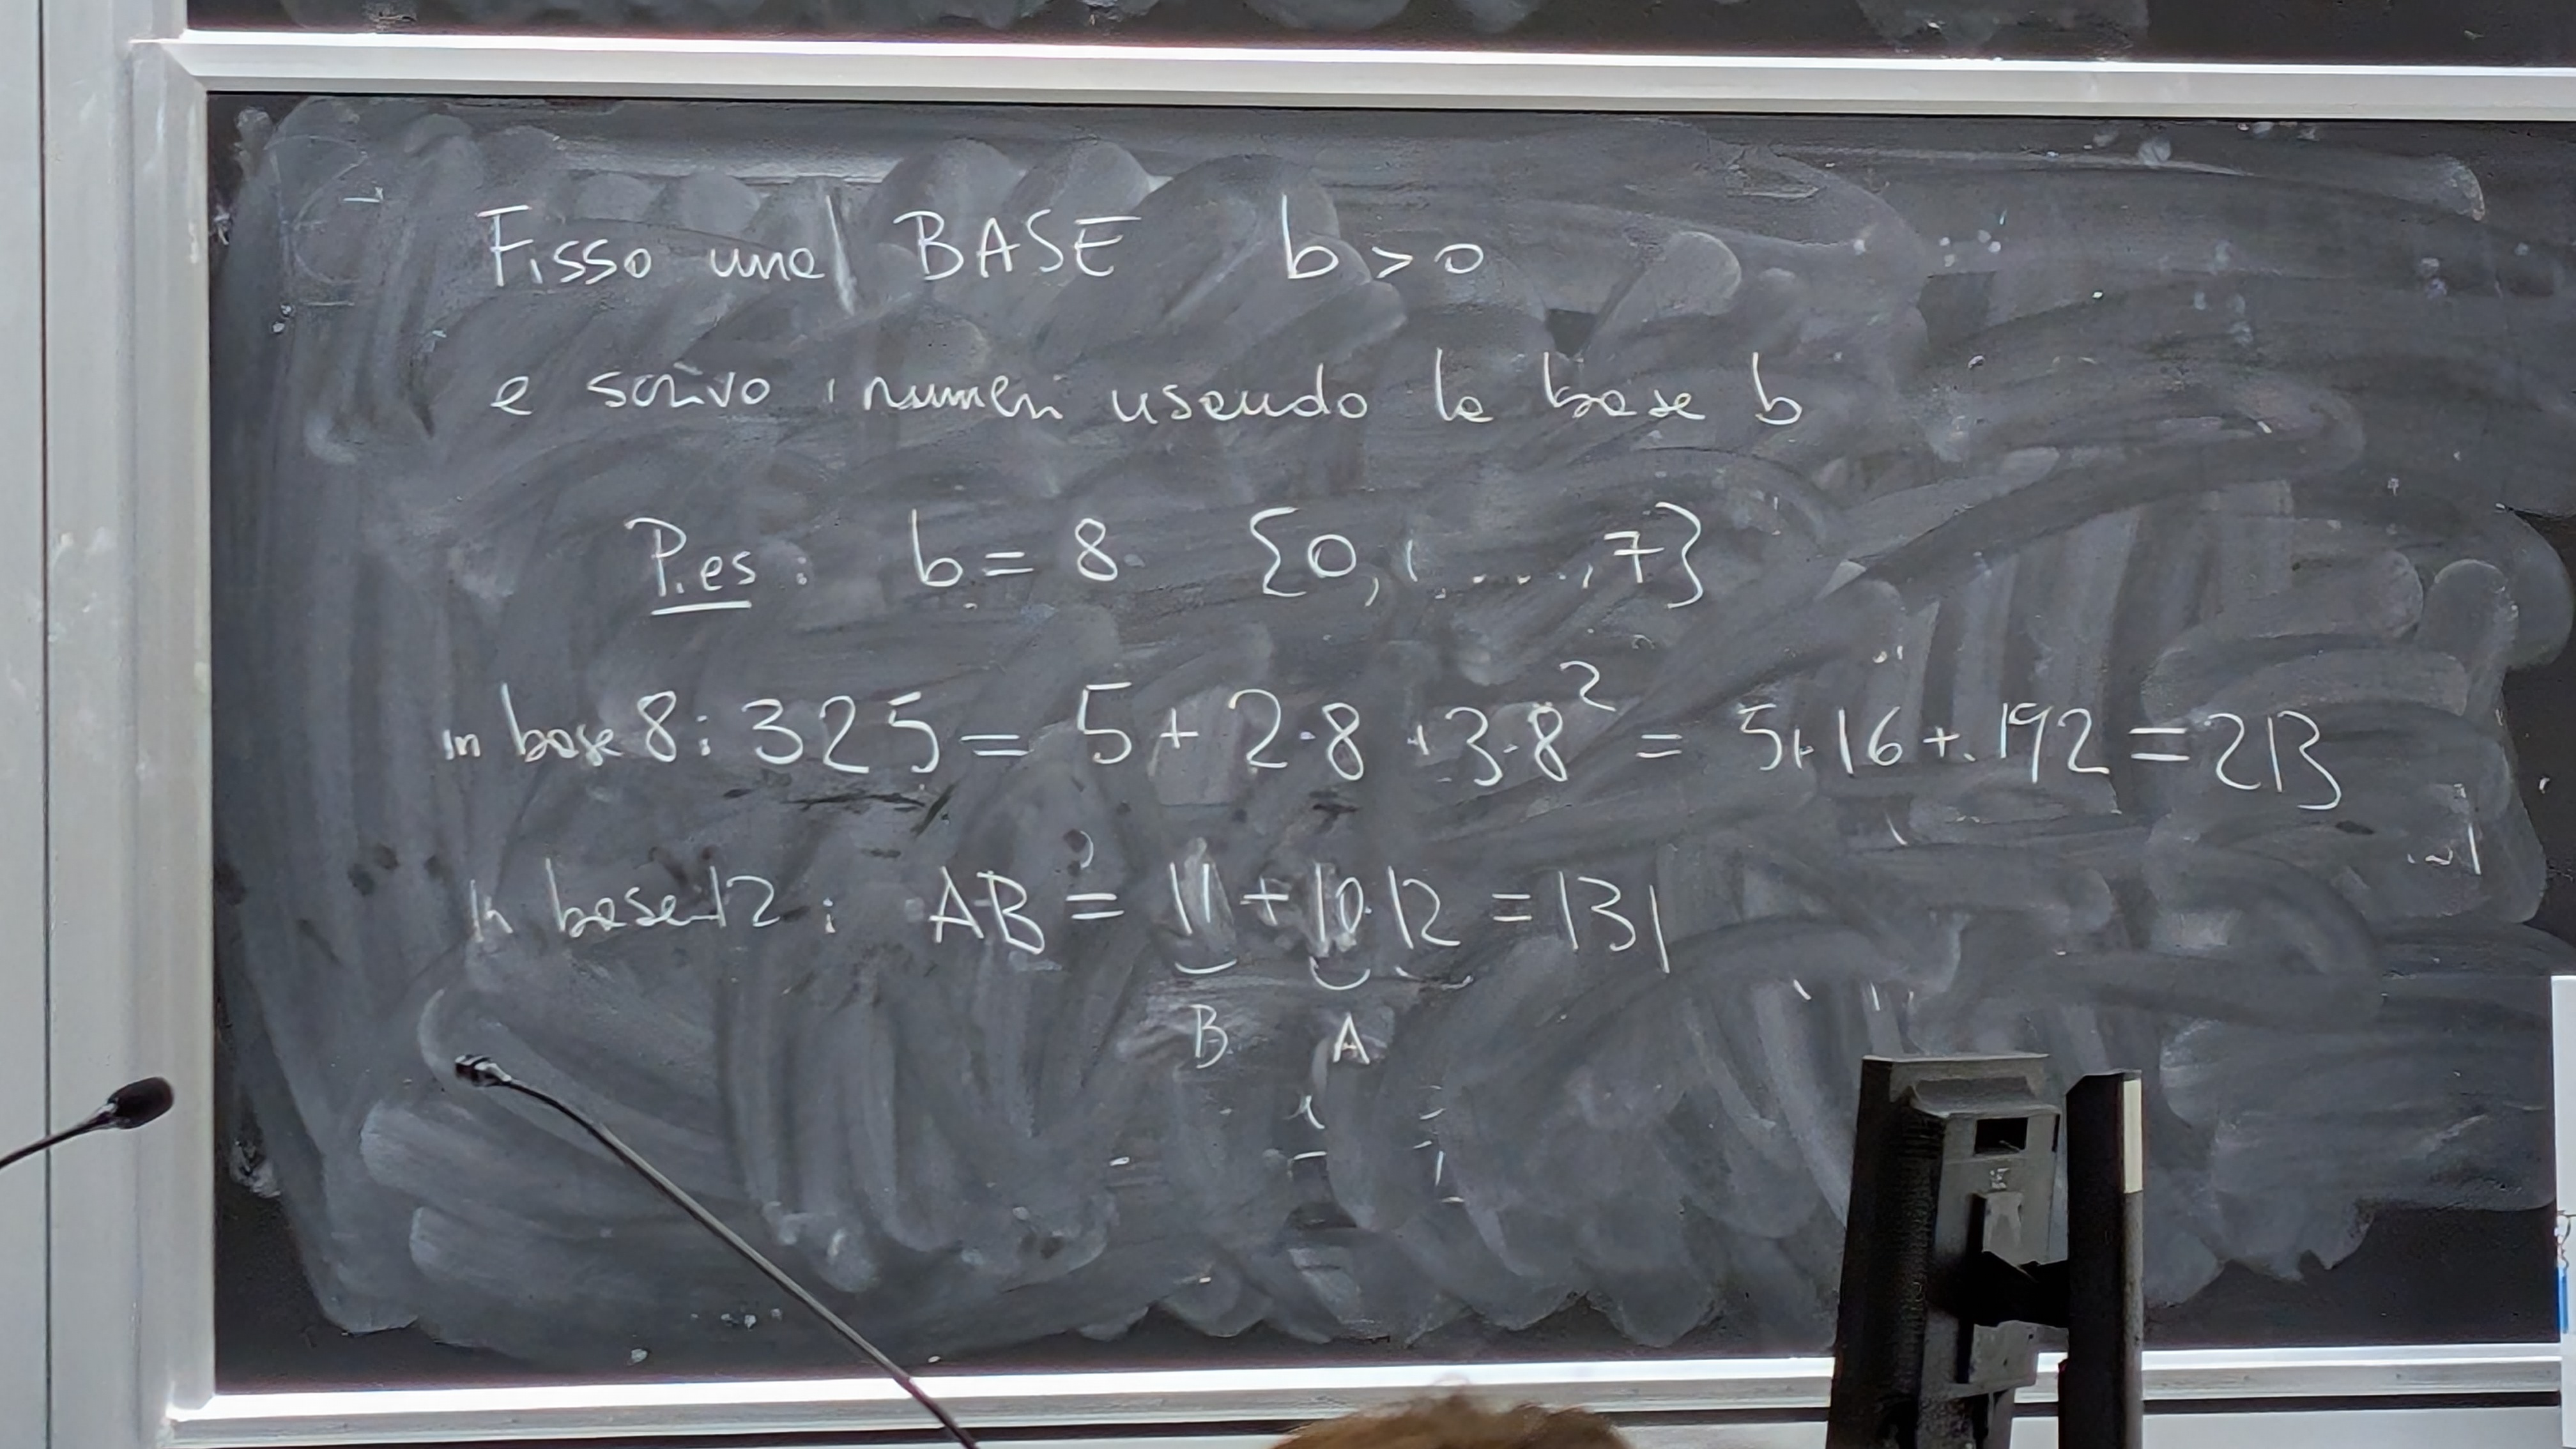 Fisso una BASE b > 0
e scrivo i numeri usando la base b
P.es: b = 8 {0, 1 ...., 7}
in base 8: 325 = 5 + 2·8 + 3·8² = 5+16+192 = 213
in base 12: AB = 11 + 10·12 = 131
B A